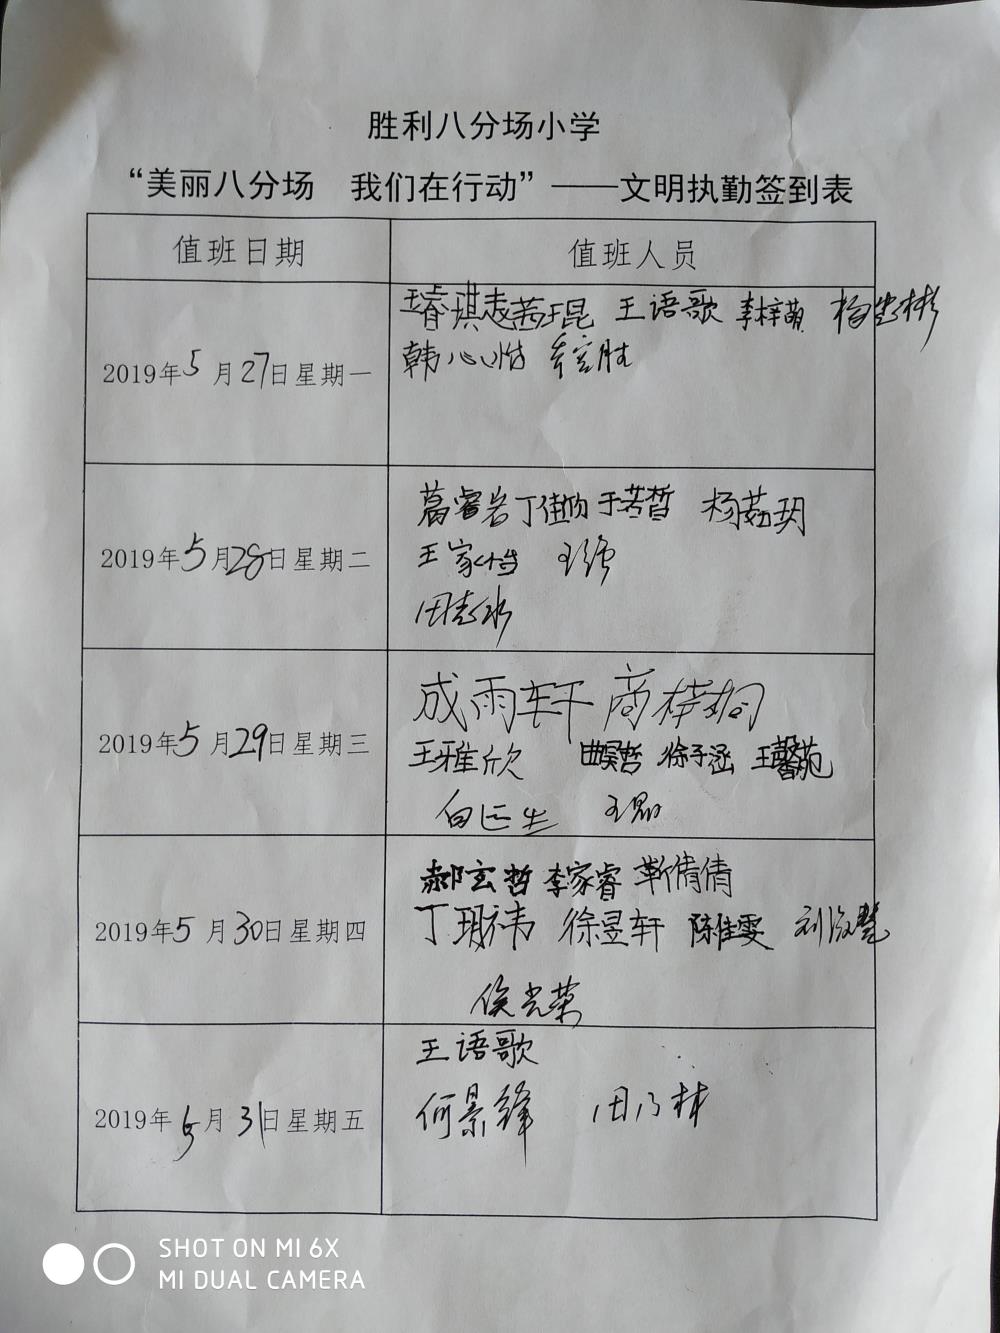 胜利八分场小学
“美丽八分场 我们在行动”——文明执勤签到表
值班日期 值班人员
王春琪 王语歌 李梓萌
韩心怡
2019年5月27日星期一
葛睿岩 丁佳欣 于若哲 杨茹玥
2019年5月28日星期二 王家怡 王强
田志水
成雨轩 商梓桐
2019年5月29日星期三 王雅欣 曲昊哲 徐子涵 王馨苑
白运生 王勋
郝玄哲 李家睿 靳倩倩
2019年5月30日星期四 丁玥祎 徐昱轩 陈佳雯
侯光荣
王语歌
2019年5月31日星期五 何景锋 田乃林
SHOT ON MI 6X
MI DUAL CAMERA